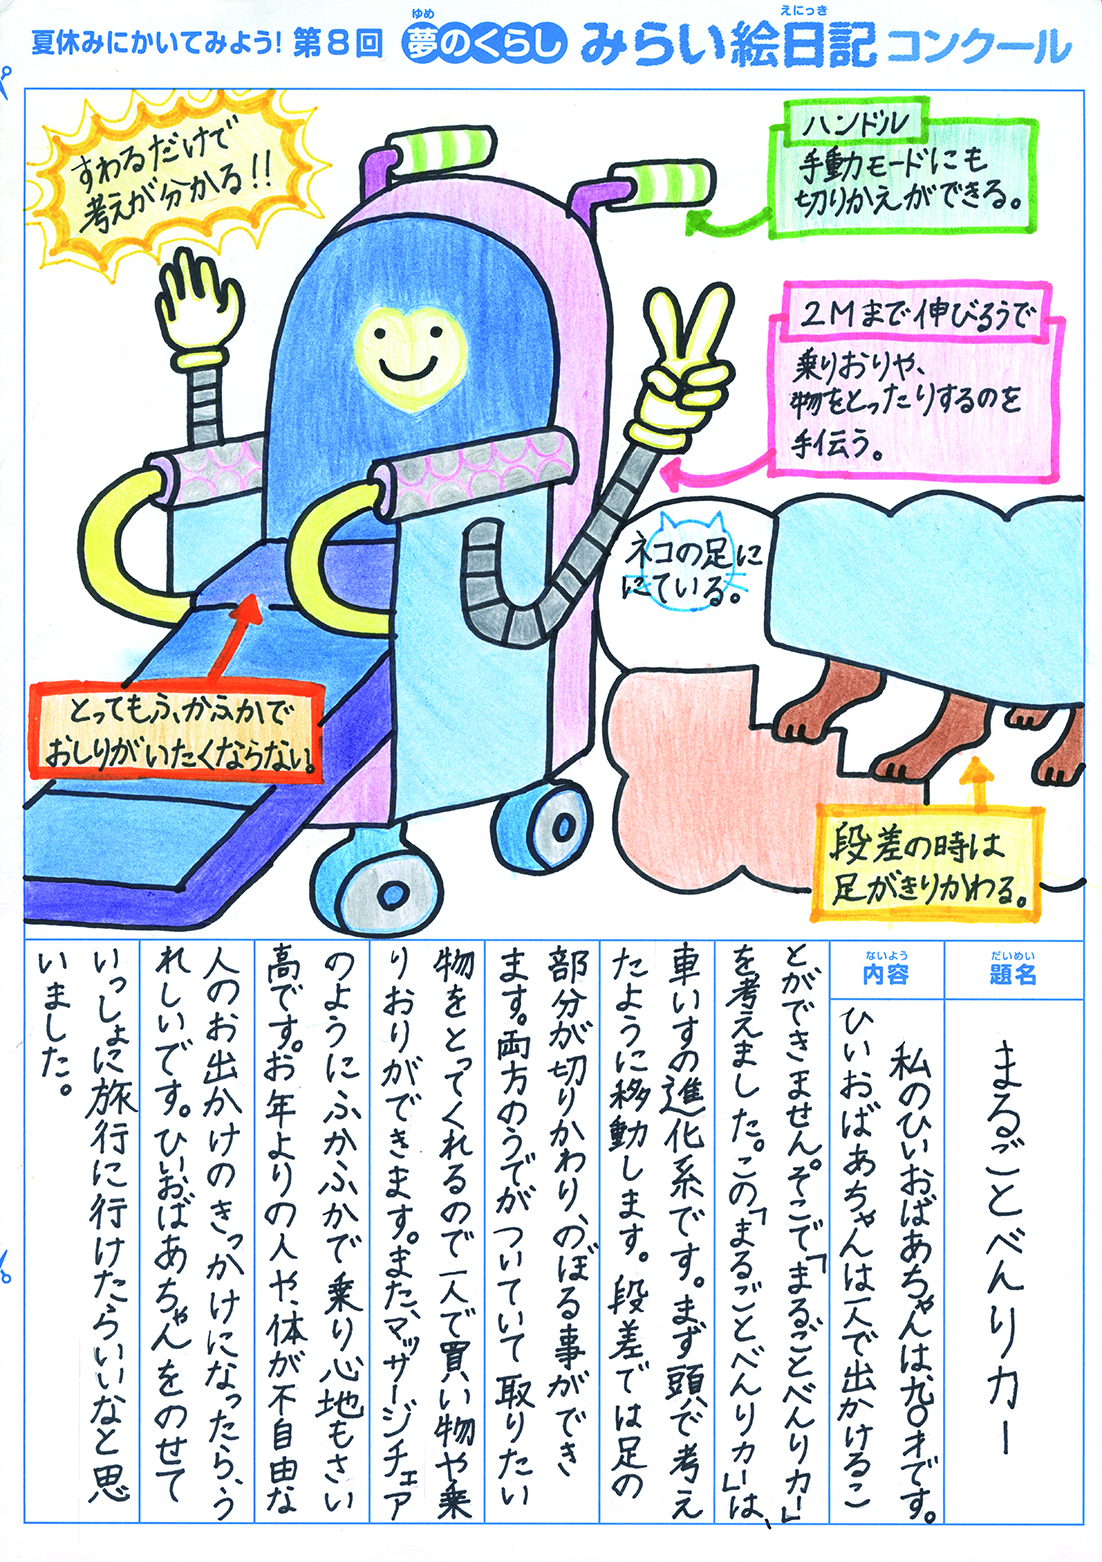 夏休みにかいてみよう! 第8回 夢のくらし みらい絵日記 コンクール
ゆめ
えにっき
すわるだけで
考えが分かる!!
ハンドル
手動モードにも
切りかえができる。
2Mまで伸びるうで
乗りおりや、
物をとったりするのを
手伝う。
ネコの足に
にている。
とってもふかふかで
おしりがいたくならない。
段差の時は
足がきりかわる。
だいめい
題名
まるごとべんりカー
ないよう
内容
私のひいおばあちゃんは九〇才です。
ひいおばあちゃんは一人で出かけるこ
とができません。そこで「まるごとべんりカー」
を考えました。この「まるごとべんりカー」は、
車いすの進化系です。まず頭で考え
たように移動します。段差では足の
部分が切りかわり、のぼる事ができ
ます。両方のうでがついていて取りたい
物をとってくれるので一人で買い物や乗
りおりができます。また、マッサージチェア
のようにふかふかで乗り心地もさい
高です。お年よりの人や、体が不自由な
人のお出かけのきっかけになったら、う
れしいです。ひいおばあちゃんをのせて
いっしょに旅行に行けたらいいなと思
いました。